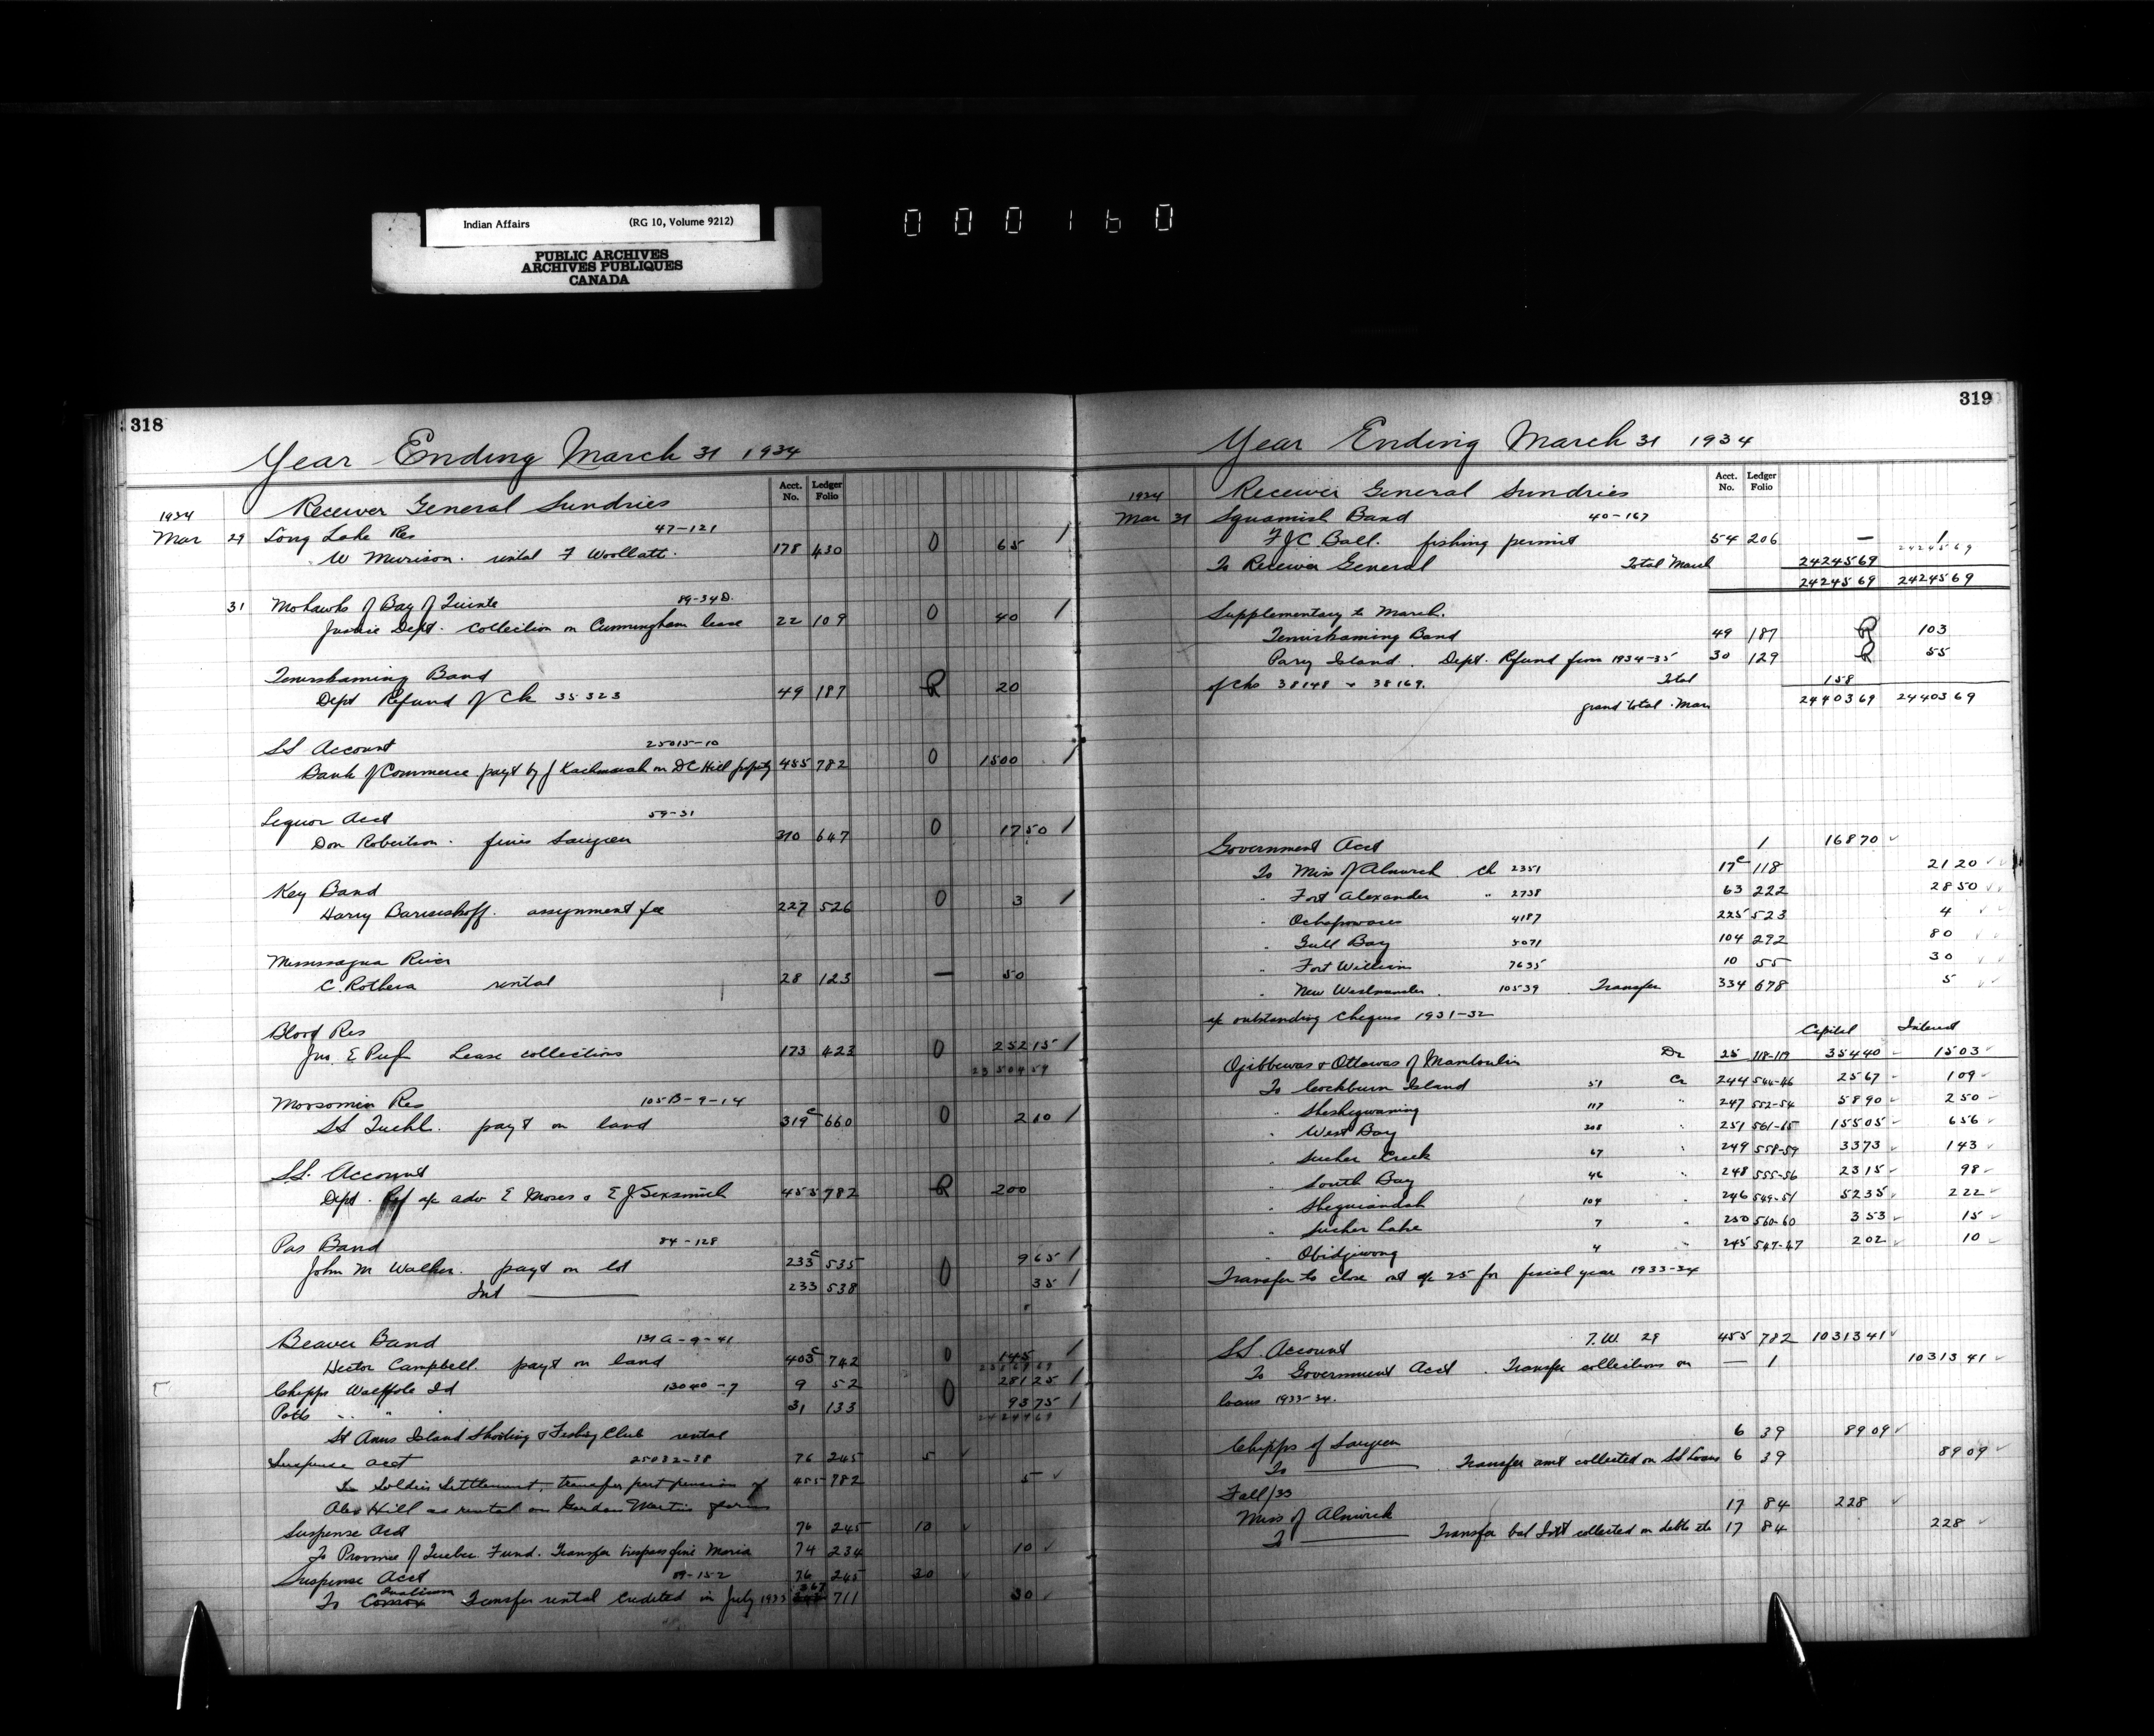 Indian Affairs (RG 10, Volume 9212)
PUBLIC ARCHIVES
ARCHIVES PUBLIQUES
CANADA
000160
318
Year Ending March 31 1934
Acct. No. Ledger Folio
1934 Receiver General Sundries
Mar 29 Long Lake Res 47-121
W Murison. rental F Woollatt. 178 430 0 65 /
31 Mohawks of Bay of Quinte 89-34D.
Justice Dept. Collection on Cunningham lease 22 109 0 40 /
Temiskaming Band
Dept Refund of Ck 35323 49 187 R 20
SS Account 25015-10
Bank of Commerce payt by J on DC Hill property 455 782 0 1500 /
Liquor Acct 59-31
Don Robertson. fines Saugeen 310 647 0 1750 /
Key Band
Harry Bariseskoff. assignment fee 227 526 0 3 /
Mississagua River
C. Rothera rental 28 123 — 50
Blood Res
Jno E Pugh Lease collections 173 423 0 25215 /
2350959
Moosomin Res 105B-9-14
SS Tuehl. payt on land 319c 660 0 210 /
SS. Account
Dept. Ref a/c adv E Moses & E J Sexsmith 455 782 R 200
Pas Band 84-128
John M Walker. payt on lot 233c 535 0 965 /
Int 233 538 35 /
Beaver Band 131A-9-41
Hector Campbell. payt on land 403c 742 0 145 /
Chipps Walpole Isd 13040-7 9 52 0 28125 /
Potts " " 31 133 9375 /
2424469
St Anns Island Shooting & Fishing Club rental
Suspense acct 25032-38 76 245 5 ✓
To Soldier Settlement, transfer part pension of 455 782 5 ✓
Alex Hill as rental on Gordon Martin farm
Suspense Acct 76 245 10 ✓
To Province of Quebec Fund. Transfer trespass fine Maria 74 234 10 ✓
Suspense Acct 89-152 76 245 30 ✓
To Comox Transfer rental credited in July 1933 367 711 30 ✓
319
Year Ending March 31 1934
Acct. No. Ledger Folio
1934 Receiver General Sundries
Mar 31 Squamish Band 40-167
F J C Ball. fishing permit 54 206 — 1
2424569
To Receiver General Total March 2424569
2424569 2424569
Supplementary to March.
Temiskaming Band 49 187 R 103
Parry Island. Dept. Refund from 1934-35 30 129 R 55
of Cks 38148 & 38169. Total 158
grand total Mar 2440369 2440369
Government Acct 1 16870 ✓
To Miss of Alnwick. Ck 2351 17c 118 2120 ✓
" Fort Alexander " 2738 63 222 2850 ✓✓
" Ochapowace 4187 225 523 4 ✓✓
" Gull Bay 5071 104 292 80 ✓✓
" Fort William 7635 10 55 30 ✓✓
" New Westminster. 10539. Transfer 334 678 5 ✓✓
a/c outstanding cheques 1931-32
Capital Interest
Ojibbewas & Ottawas of Manitoulin Dr 25 118-119 35440 ✓ 1503 ✓
To Cockburn Island 51 Cr 244 544-46 2567 ✓ 109 ✓
" Sheshegwaning 117 " 247 552-54 5890 ✓ 250 ✓
" West Bay 308 251 561-65 15505 ✓ 656 ✓
" Sucker Creek 67 " 249 558-59 3373 ✓ 143 ✓
" South Bay 46 " 248 555-56 2315 ✓ 98 ✓
" Sheguiandah 104 " 246 549-51 5235 ✓ 222 ✓
" Sucker Lake 7 " 250 560-60 353 ✓ 15 ✓
" Obidgewong 4 245 547-47 202 ✓ 10 ✓
Transfer to close out a/c 25 for fiscal year 1933-34
SS. Account T.W. 29 455 782 1031341 ✓
To Government Acct. Transfer collections on — 1 1031341 ✓
loans 1933-34.
Chipps of Saugeen 6 39 8909 ✓
To ——— . Transfer amt collected on SS Loans 6 39 8909 ✓
Fall/33
Miss of Alnwick 17 84 228 ✓
To ——— Transfer bal Int collected on debts etc 17 84 228 ✓